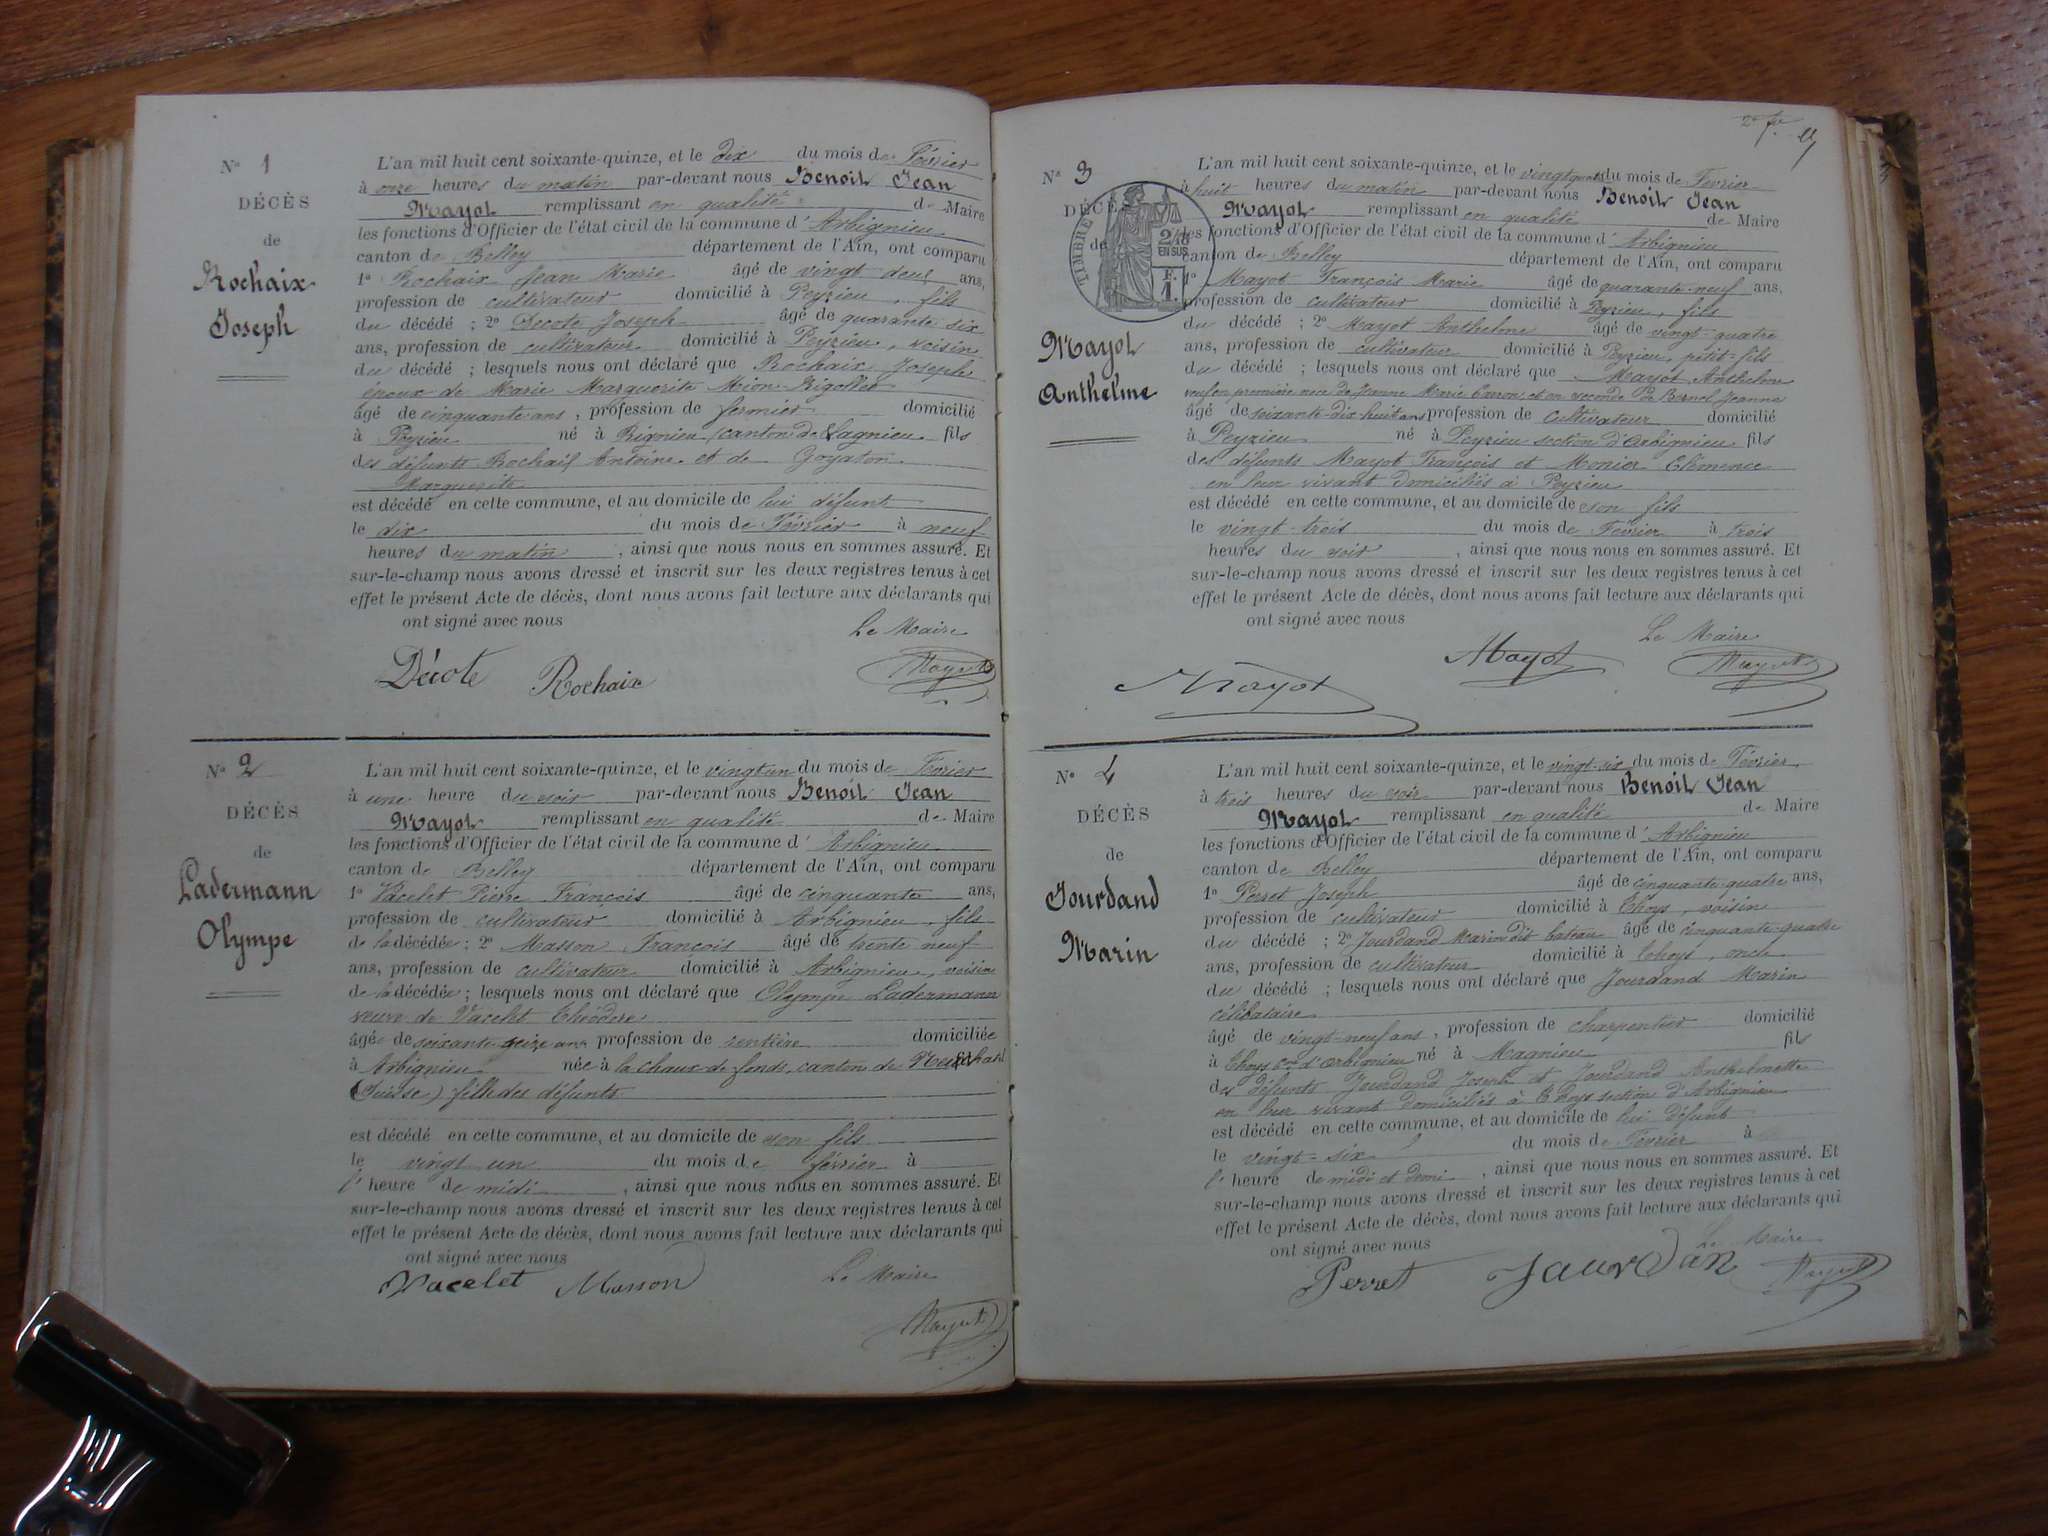 N° 1
DÉCÈS
de
Rochaix
Joseph
L'an mil huit cent soixante-quinze, et le dix du mois de Février
à onze heures du matin par-devant nous Benoit Jean
Mayot remplissant en qualité de Maire
les fonctions d'Officier de l'état civil de la commune d'Arbignieu
canton de Belley département de l'Ain, ont comparu
1° Rochaix Jean Marie âgé de vingt-deux ans,
profession de cultivateur domicilié à Peyzieu, fils
du décédé ; 2° Decote Joseph âgé de quarante six
ans, profession de cultivateur domicilié à Peyzieu, voisin
du décédé ; lesquels nous ont déclaré que Rochaix Joseph
époux de Marie Marguerite Rigollet
âgé de cinquante ans, profession de fermier domicilié
à Peyzieu né à (canton de Lagnieu fils
des défunts Rochaix Antoine et de Goyaton
Marguerite
est décédé en cette commune, et au domicile de lui défunt
le dix du mois de Février à neuf
heures du matin, ainsi que nous nous en sommes assuré. Et
sur-le-champ nous avons dressé et inscrit sur les deux registres tenus à cet
effet le présent Acte de décès, dont nous avons fait lecture aux déclarants qui
ont signé avec nous
Le Maire
Décote Rochaix Mayot
N° 2
DÉCÈS
de
Ladermann
Olympe
L'an mil huit cent soixante-quinze, et le vingt un du mois de Février
à une heure du soir par-devant nous Benoit Jean
Mayot remplissant en qualité de Maire
les fonctions d'Officier de l'état civil de la commune d'Arbignieu
canton de Belley département de l'Ain, ont comparu
1° Vacelet Pierre François âgé de cinquante ans,
profession de cultivateur domicilié à Arbignieu, fils
de la décédée ; 2° Masson François âgé de trente neuf
ans, profession de cultivateur domicilié à Arbignieu, voisin
de la décédée ; lesquels nous ont déclaré que Olympe Ladermann
veuve de Vacelet Théodore
âgée de soixante-seize ans profession de rentière domiciliée
à Arbignieu née à la chaux de fonds, canton de Neufchatel
(Suisse) fille des défunts
est décédé en cette commune, et au domicile de son fils
le vingt un du mois de février à
l'heure de midi, ainsi que nous nous en sommes assuré. Et
sur-le-champ nous avons dressé et inscrit sur les deux registres tenus à cet
effet le présent Acte de décès, dont nous avons fait lecture aux déclarants qui
ont signé avec nous
Vacelet Masson Le Maire
Mayot
N° 3
DÉCÈS
de
Mayot
Anthelme
TIMBRE
2/10
EN SUS
F.
1.
L'an mil huit cent soixante-quinze, et le vingt quatre du mois de Février
à huit heures du matin par-devant nous Benoit Jean
Mayot remplissant en qualité de Maire
les fonctions d'Officier de l'état civil de la commune d'Arbignieu
canton de Belley département de l'Ain, ont comparu
1° Mayot François Marie âgé de quarante-neuf ans,
profession de cultivateur domicilié à Peyzieu, fils
du décédé ; 2° Mayot Anthelme âgé de vingt-quatre
ans, profession de cultivateur domicilié à Peyzieu, petit-fils
du décédé ; lesquels nous ont déclaré que Mayot Anthelme
veuf en première noce de Jeanne Marie et en seconde de Jeanne
âgé de soixante-dix-huit ans profession de cultivateur domicilié
à Peyzieu né à Peyzieu section d'Arbignieu fils
des défunts Mayot François et Monier Clémence
en leur vivant domiciliés à Peyzieu
est décédé en cette commune, et au domicile de son fils
le vingt-trois du mois de Février à trois
heures du soir, ainsi que nous nous en sommes assuré. Et
sur-le-champ nous avons dressé et inscrit sur les deux registres tenus à cet
effet le présent Acte de décès, dont nous avons fait lecture aux déclarants qui
ont signé avec nous
Le Maire
Mayot Mayot Mayot
N° 4
DÉCÈS
de
Jourdand
Marin
L'an mil huit cent soixante-quinze, et le vingt-six du mois de Février
à trois heures du soir par-devant nous Benoit Jean
Mayot remplissant en qualité de Maire
les fonctions d'Officier de l'état civil de la commune d'Arbignieu
canton de Belley département de l'Ain, ont comparu
1° Perret Joseph âgé de cinquante-quatre ans,
profession de cultivateur domicilié à Thoys, voisin
du décédé ; 2° Jourdand Marin dit bateau âgé de cinquante-quatre
ans, profession de cultivateur domicilié à Thoys, oncle
du décédé ; lesquels nous ont déclaré que Jourdand Marin
célibataire
âgé de vingt-neuf ans, profession de charpentier domicilié
à Thoys d'Arbignieu né à Magnieu fils
des défunts Jourdand Joseph et Jourdand Anthelmette
en leur vivant domiciliés à Thoys section d'Arbignieu
est décédé en cette commune, et au domicile de lui défunt
le vingt-six du mois de Février à
l'heure de midi et demi, ainsi que nous nous en sommes assuré. Et
sur-le-champ nous avons dressé et inscrit sur les deux registres tenus à cet
effet le présent Acte de décès, dont nous avons fait lecture aux déclarants qui
ont signé avec nous
Le Maire
Perret Jaurdan Mayot